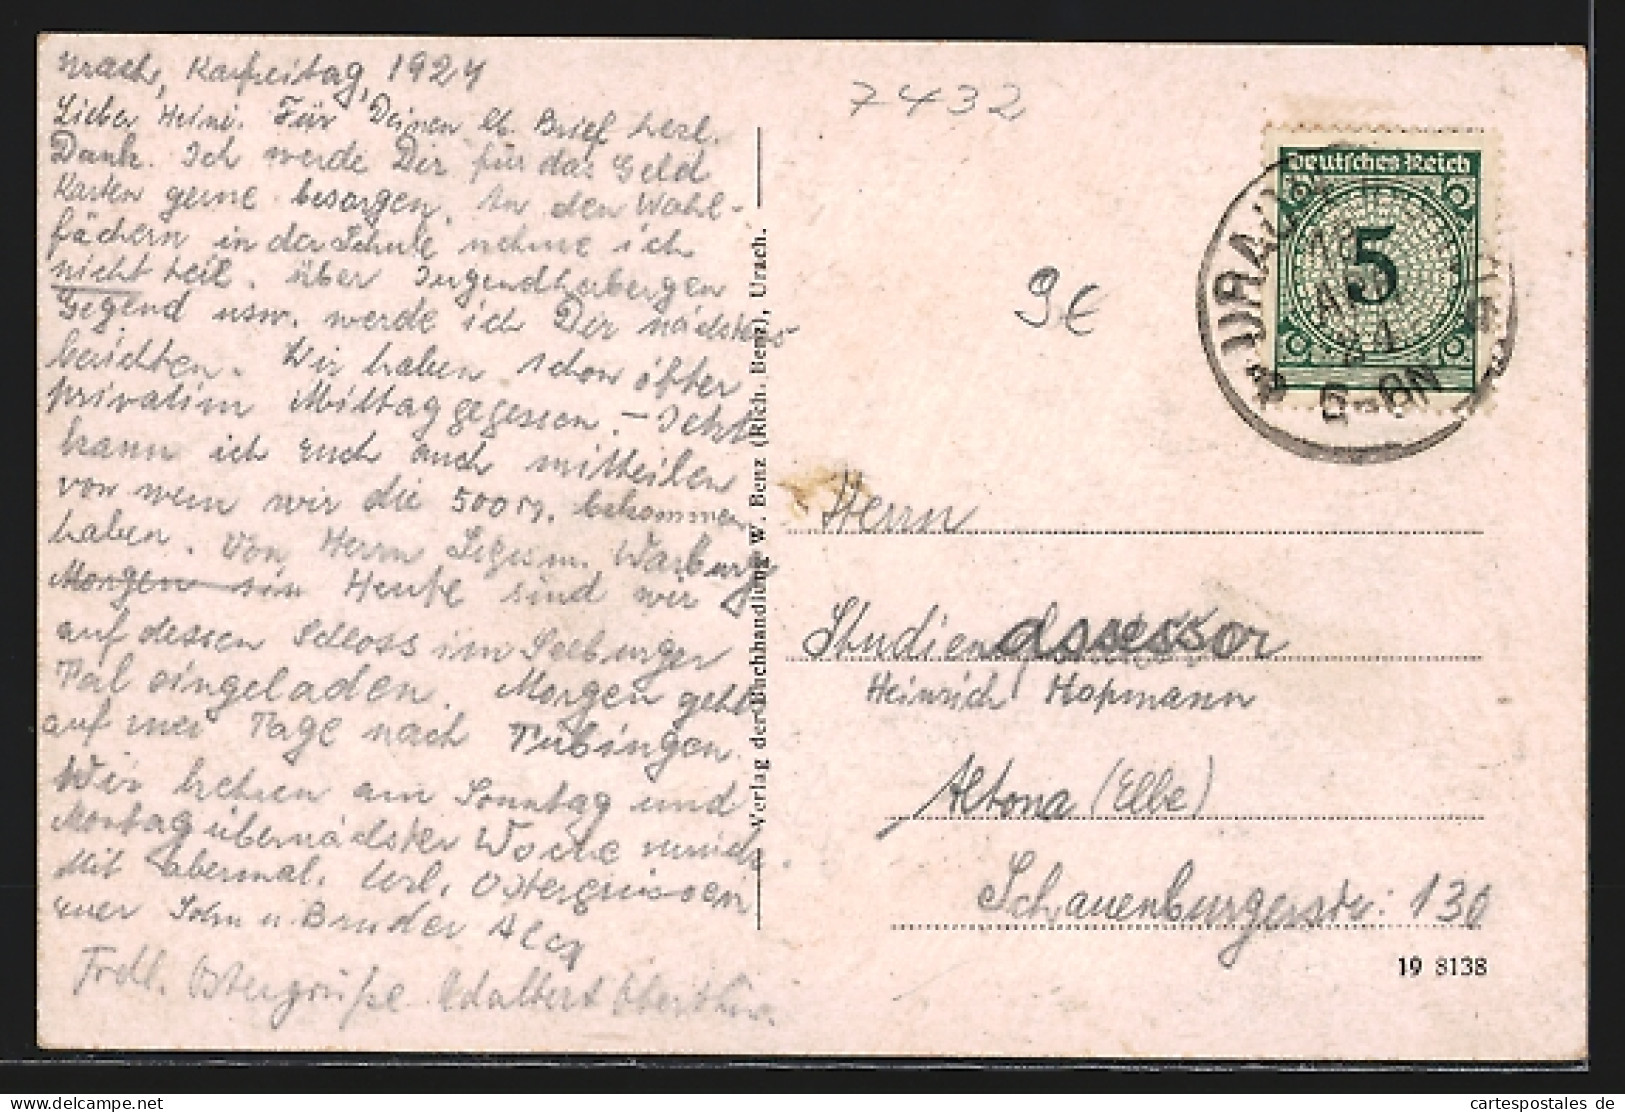 Urach, Karfreitag, 1924
Lieber Heini. Für Deinen lb. Brief herzl.
Dank. Ich werde Dir für das Geld
Karten gerne besorgen. An den Wahl-
fächern in der Schule nehme ich
nicht teil. Über Jugendherbergen
Gegend usw. werde ich Dir nächstens
berichten. Wir haben schon öfter
privatim Mittag gegessen. – Jetzt
kann ich Euch auch mitteilen
von wem wir die 500 M. bekommen
haben. Von Herrn Warburg
Morgen sin Heute sind wir
auf dessen Schloss im Seeburger
Tal eingeladen. Morgen geht
auf zwei Tage nach Tübingen.
Wir kehren am Sonntag und
Montag übernächster Woche zurück.
Mit abermal. herzl. Ostergrüssen
euer Sohn u. Bruder
Frdl. Ostergrüße Adalbert
7432
9€
Deutsches Reich
5
URACH
APR
24
6-8N
Verlag der Buchhandlung W. Benz (Rich. Benz), Urach.
Herrn
Studienassessor
Heinrich Hopmann
Altona (Elbe)
Schauenburgerstr: 130
19 8138
cartespostales de